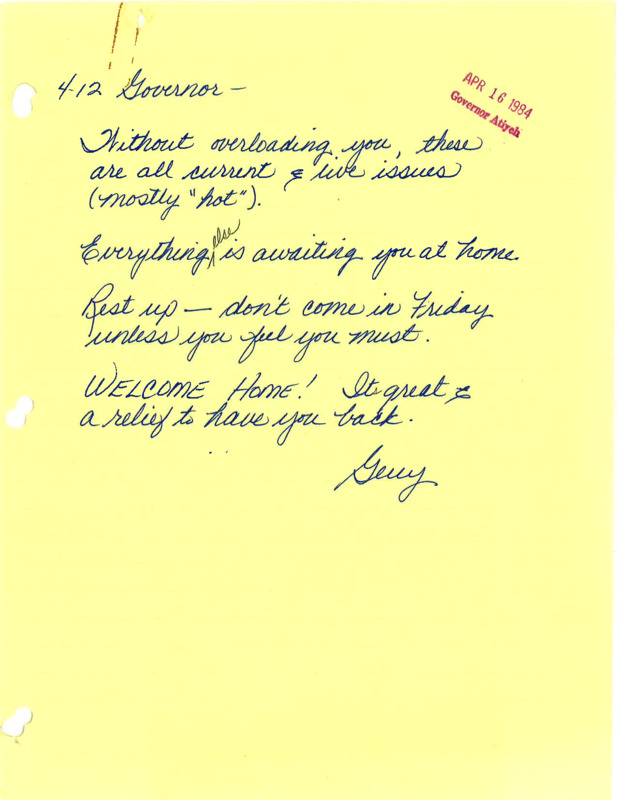 4-12 Governor —
APR 16 1984
Governor Atiyeh
Without overloading you, these
are all current & live issues
(mostly "hot").
Everything else is awaiting you at home.
Rest up — don't come in Friday
unless you feel you must.
WELCOME HOME! Its great &
a relief to have you back.
Gerry